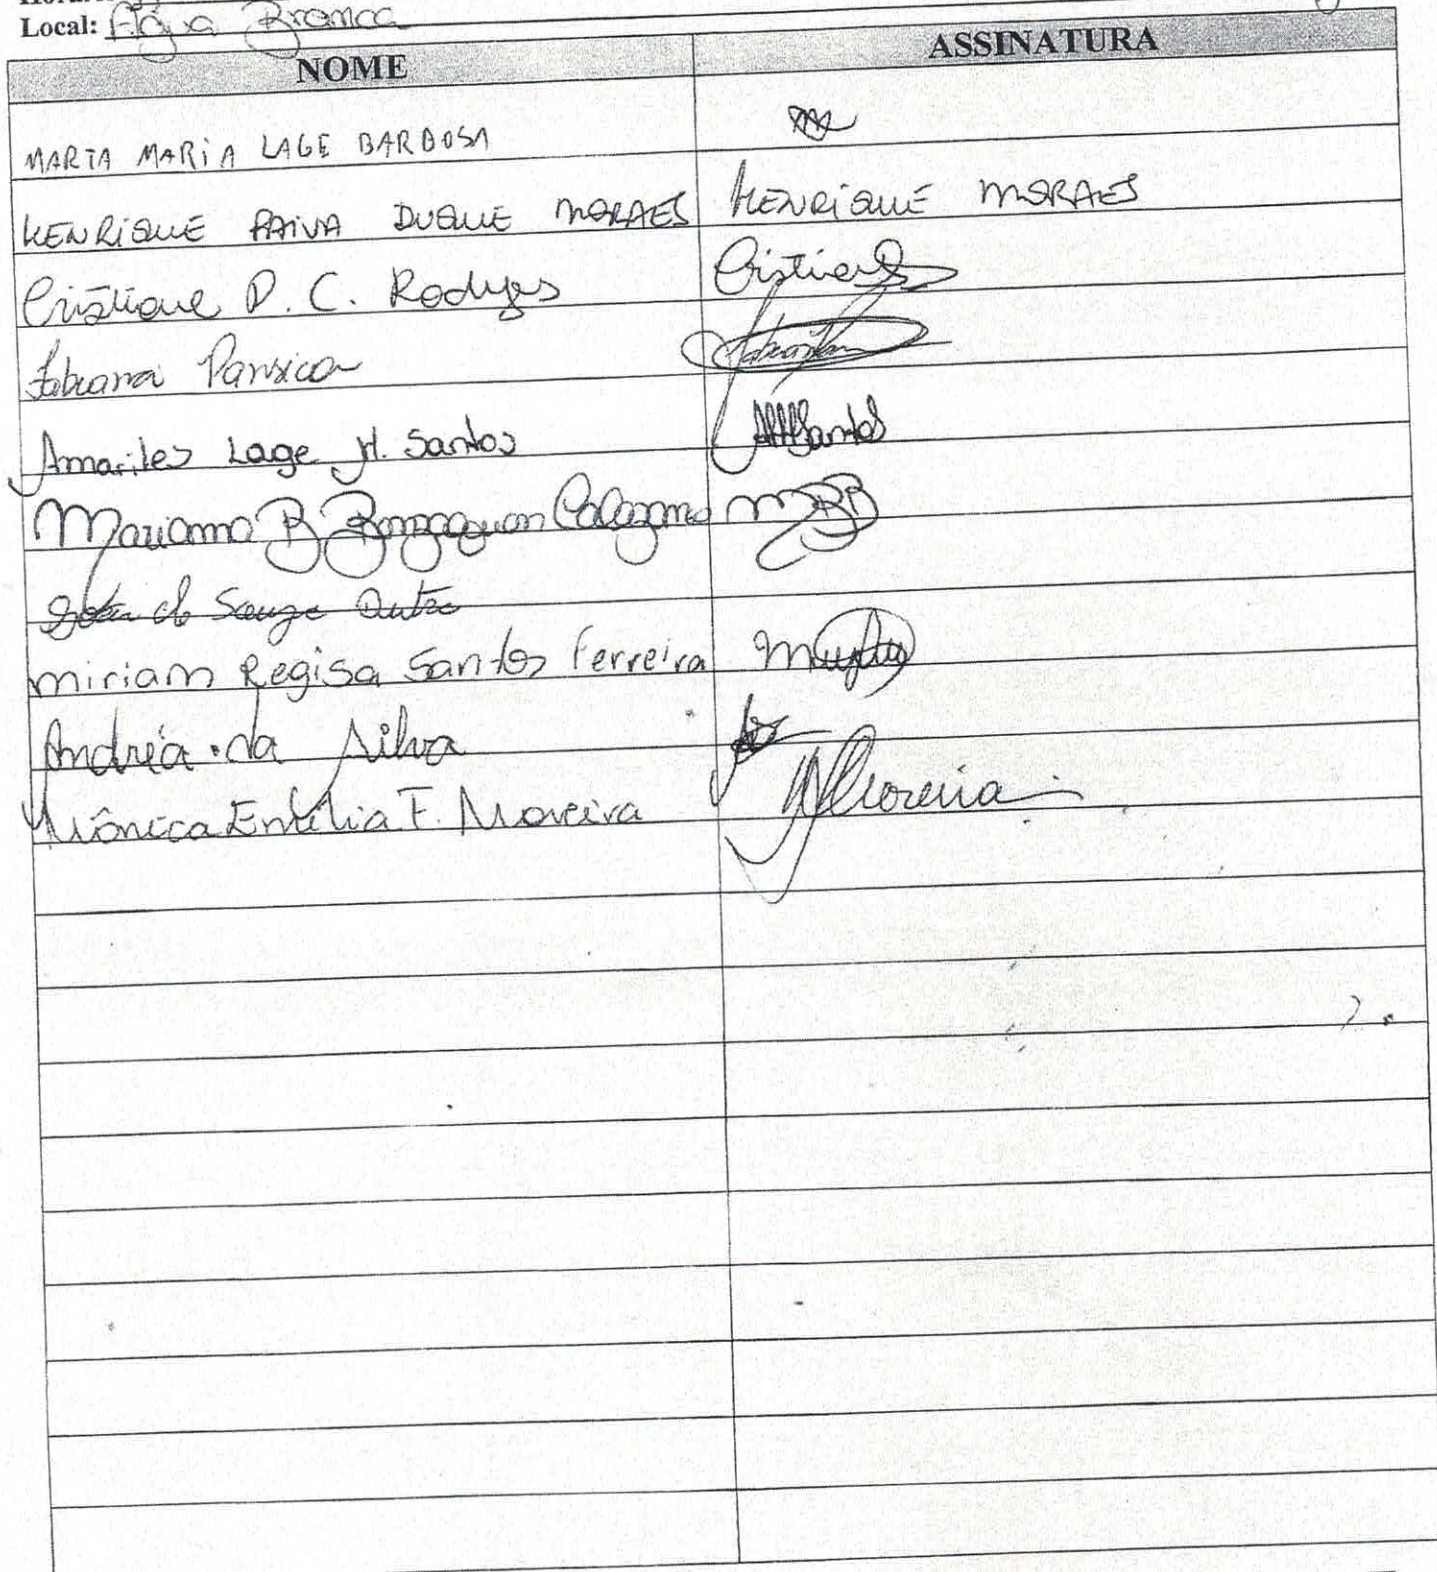 Local: Água Branca
NOME ASSINATURA
MARTA MARIA LAGE BARBOSA
HENRIQUE PAIVA DUQUE MORAES HENRIQUE MORAES
Cristiane P. C. Rodrges Cristiane
Fabiana Pansica
Amariles Lage H. Santos AHSantos
Marianna B
de Souza Dutra
Miriam Regisa Santos Ferreira
Andréa da Silva
Mônica Emília F. Moreira Moreira